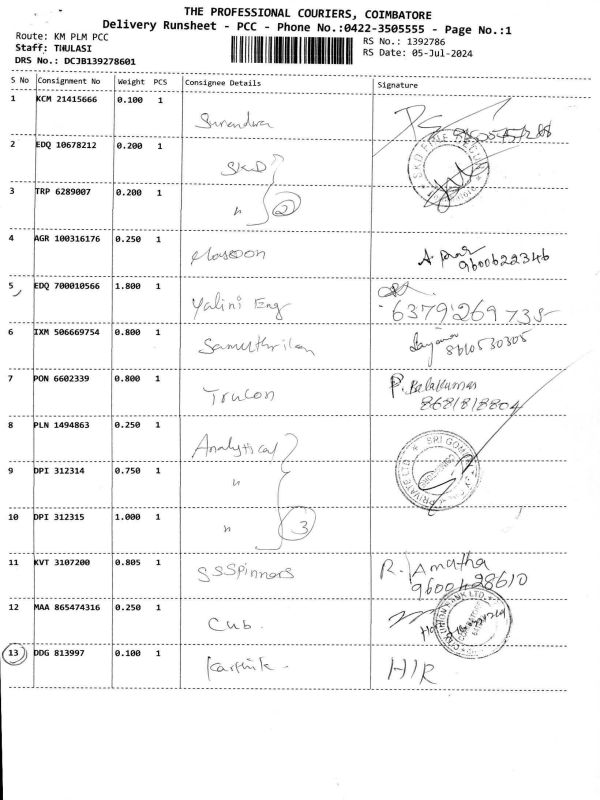 THE PROFESSIONAL COURIERS, COIMBATORE
Delivery Runsheet - PCC - Phone No.:0422-3505555 - Page No.:1
Route: KM PLM PCC
RS No.: 1392786
Staff: THULASI
RS Date: 05-Jul-2024
DRS No.: DCJB139278601
S No Consignment No Weight PCS Consignee Details Signature
1 KCM 21415666 0.100 1 Surendra
2 EDQ 10678212 0.200 1 SKD
3 TRP 6289007 0.200 1 " 2
4 AGR 100316176 0.250 1 9600622346
5 EDQ 700010566 1.800 1 Yalini Eng 6379126973
6 IXM 506669754 0.800 1 8610530305
7 PON 6602339 0.800 1 Trucon P. Balakumar
8681818804
8 PLN 1494863 0.250 1 Analytical
9 DPI 312314 0.750 1 "
10 DPI 312315 1.000 1 " 3
11 KVT 3107200 0.805 1 SSSpinners R. Amutha
9600428610
12 MAA 865474316 0.250 1 Cub.
13 DDG 813997 0.100 1 Karthik - H/R